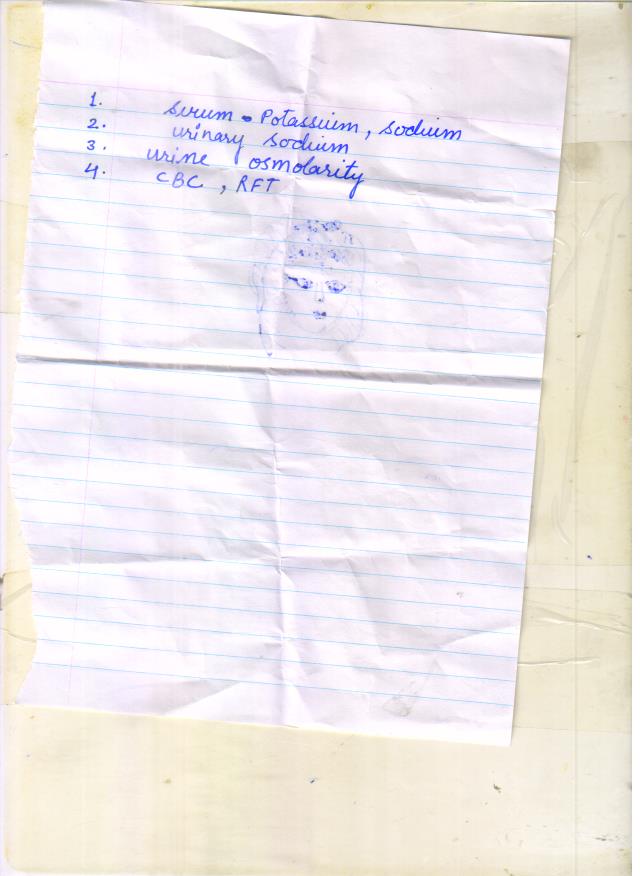 1. Serum Potassium, sodium
2. urinary sodium
3. urine osmolarity
4. CBC, RFT